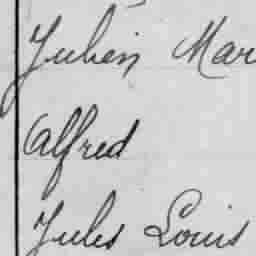 Julien Mar
Alfred
Jules Louis